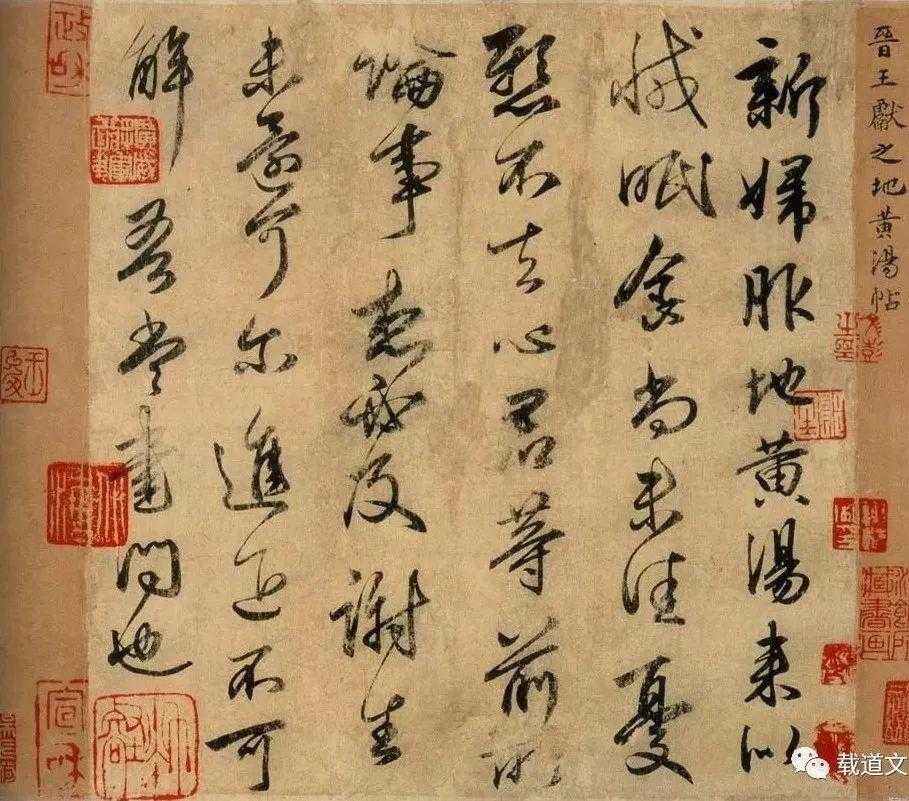 晉王獻之地黄湯帖
新婦服地黄湯来似
減眠食尚未佳憂
懸不去心君等前所
論事想必及謝生
未還何尔進退不可
解吾當書問也
政和
宣和
载道文